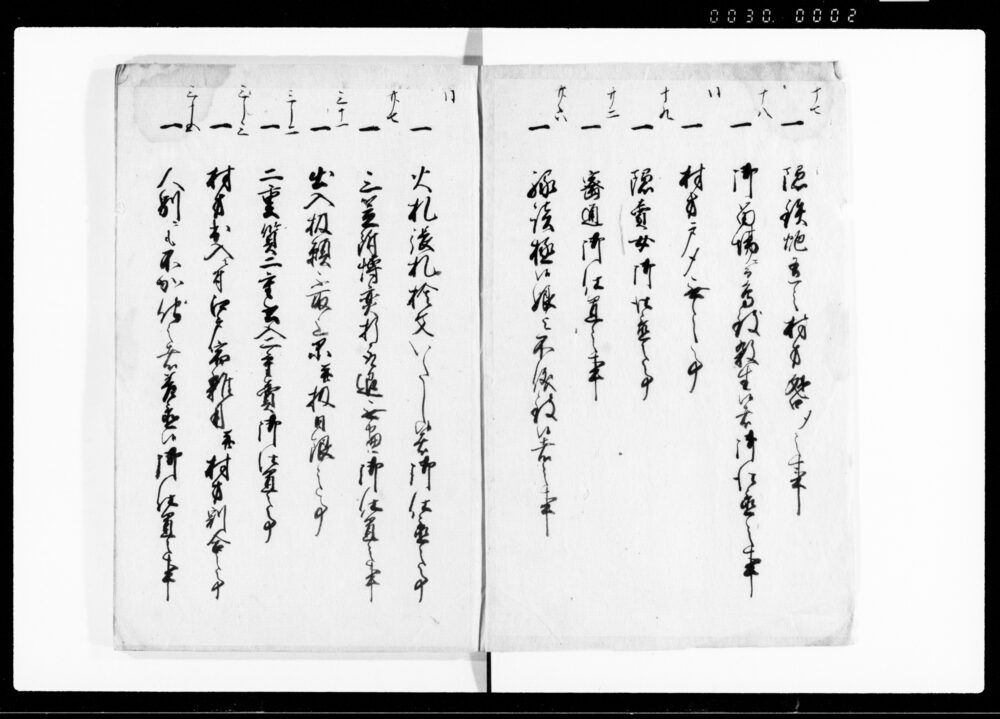 十七
一 隠鉄炮有之村方咎メ之事
十八
一 御留場ニ而鳥致殺生候者御仕置之事
同
一 村方戸〆無之事
十九
一 隠賣女御仕置之事
廿二
一 密通御仕置之事
廿六
一 縁談極候娘と不儀致候者之事
同
一 火札張札捨文いたし候者御仕置之事
廿七
一 三笠附博奕打取退無尽御仕置之事
三十一
一 出入扱願不取上品并扱日限之事
三十二
一 二重質二重書入二重賣御仕置之事
三十三
一 村方出入ニ付江戸宿雑用并村方割合之事
三十五
一 人別ニも不加他之者差置候御仕置之事
0030. 0002